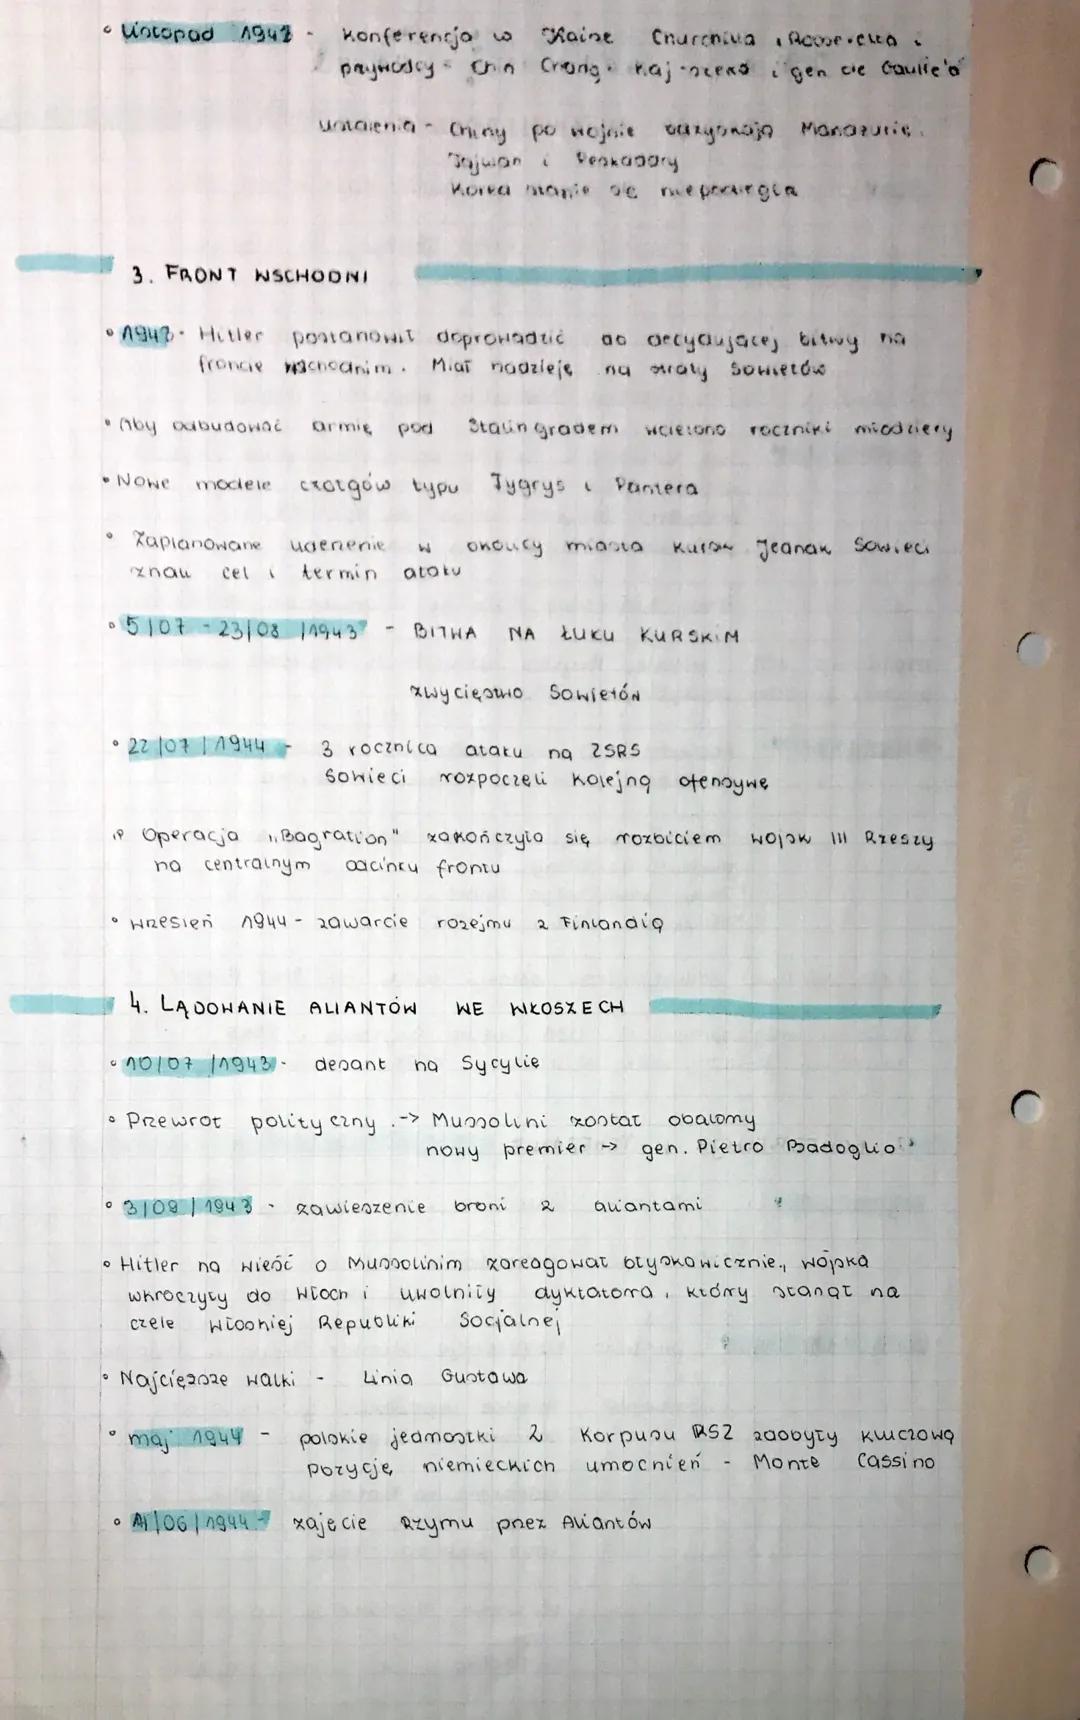 • Listopad 1943 - Konferencja w Kairze Churchilla, Roosevelta i
przywódcy Chin Czang Kaj-szeka i gen de Gaulle'a
ustalenia - Chiny po wojnie odzyskają Mandżurię,
Tajwan i Peskadory
Korea stanie się niepodległa
3. FRONT WSCHODNI
• 1943 - Hitler postanowił doprowadzić do decydującej bitwy na
froncie wschodnim. Miał nadzieję na straty Sowietów
• Aby odbudować armię pod Stalingradem wcielono roczniki młodzieży
• Nowe modele czołgów typu Tygrys i Pantera
• Zaplanowane uderzenie w okolicy miasta Kursk Jednak Sowieci
znali cel i termin ataku
• 5/07 - 23/08 /1943 - BITWA NA ŁUKU KURSKIM
zwycięstwo Sowietów
• 22/07/1944 - 3 rocznica ataku na ZSRS
Sowieci rozpoczęli kolejną ofensywę
Operacja "Bagration" zakończyła się rozbiciem wojsk III Rzeszy
na centralnym odcinku frontu
• wrzesień 1944 - zawarcie rozejmu z Finlandią
4. LĄDOWANIE ALIANTÓW WE WŁOSZECH
• 10/07/1943 - desant na Sycylię
• Przewrot polityczny -> Mussolini został obalony
nowy premier -> gen. Pietro Badoglio
• 3/09/1943 - zawieszenie broni z aliantami
• Hitler na wieść o Mussolinim zareagował błyskawicznie, wojska
wkroczyły do Włoch i uwolniły dyktatora, który stanął na
czele Włoskiej Republiki Socjalnej
• Najcięższe walki - Linia Gustawa
• maj 1944 - polskie jednostki 2 Korpusu PSZ zdobyły kluczową
pozycję niemieckich umocnień - Monte Cassino
• /06/1944 - zajęcie Rzymu przez Aliantów